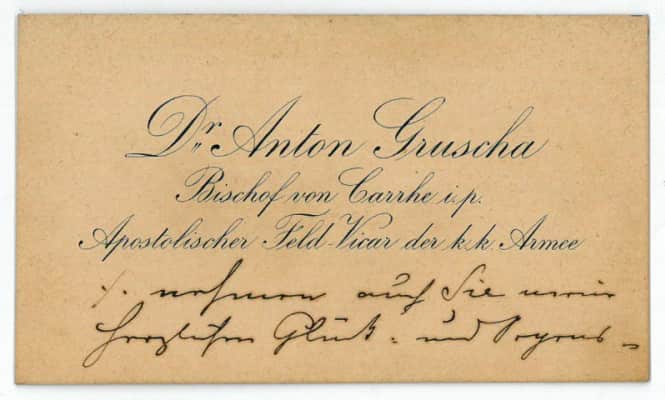 Dr. Anton Gruscha
Bischof von Carrhe i. p.
Apostolischer Feld-Vicar der k. k. Armee
./. nehmen auch Sie meine
herzlichen Glück- und Segens-